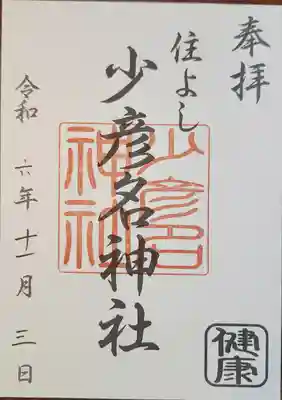 奉拝
住よし
少彦名神社
少彦名神社
令和六年十一月三日
健康